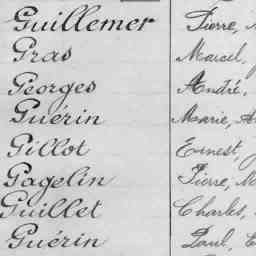 Guillemer Pierre, M
Gras Marcel,
Georges André,
Guérin Marie, A
Gillot Ernest,
Gagelin Pierre, M
Guillet Charles,
Guérin Paul, E